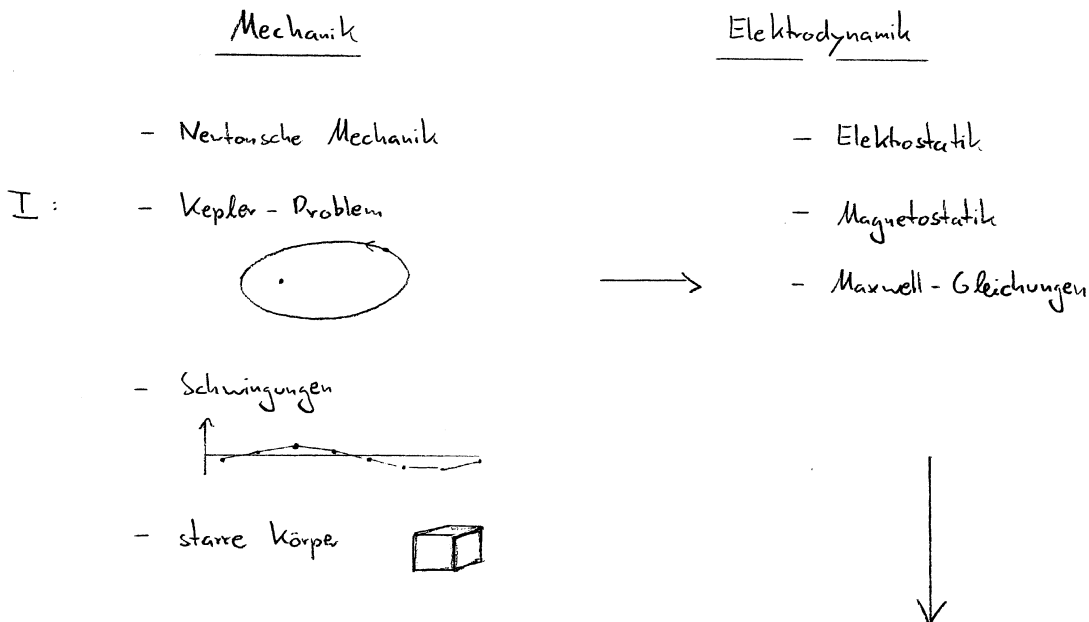 Mechanik
- Newtonsche Mechanik
I : - Kepler - Problem
- Schwingungen
- starre Körper
Elektrodynamik
- Elektrostatik
- Magnetostatik
- Maxwell - Gleichungen